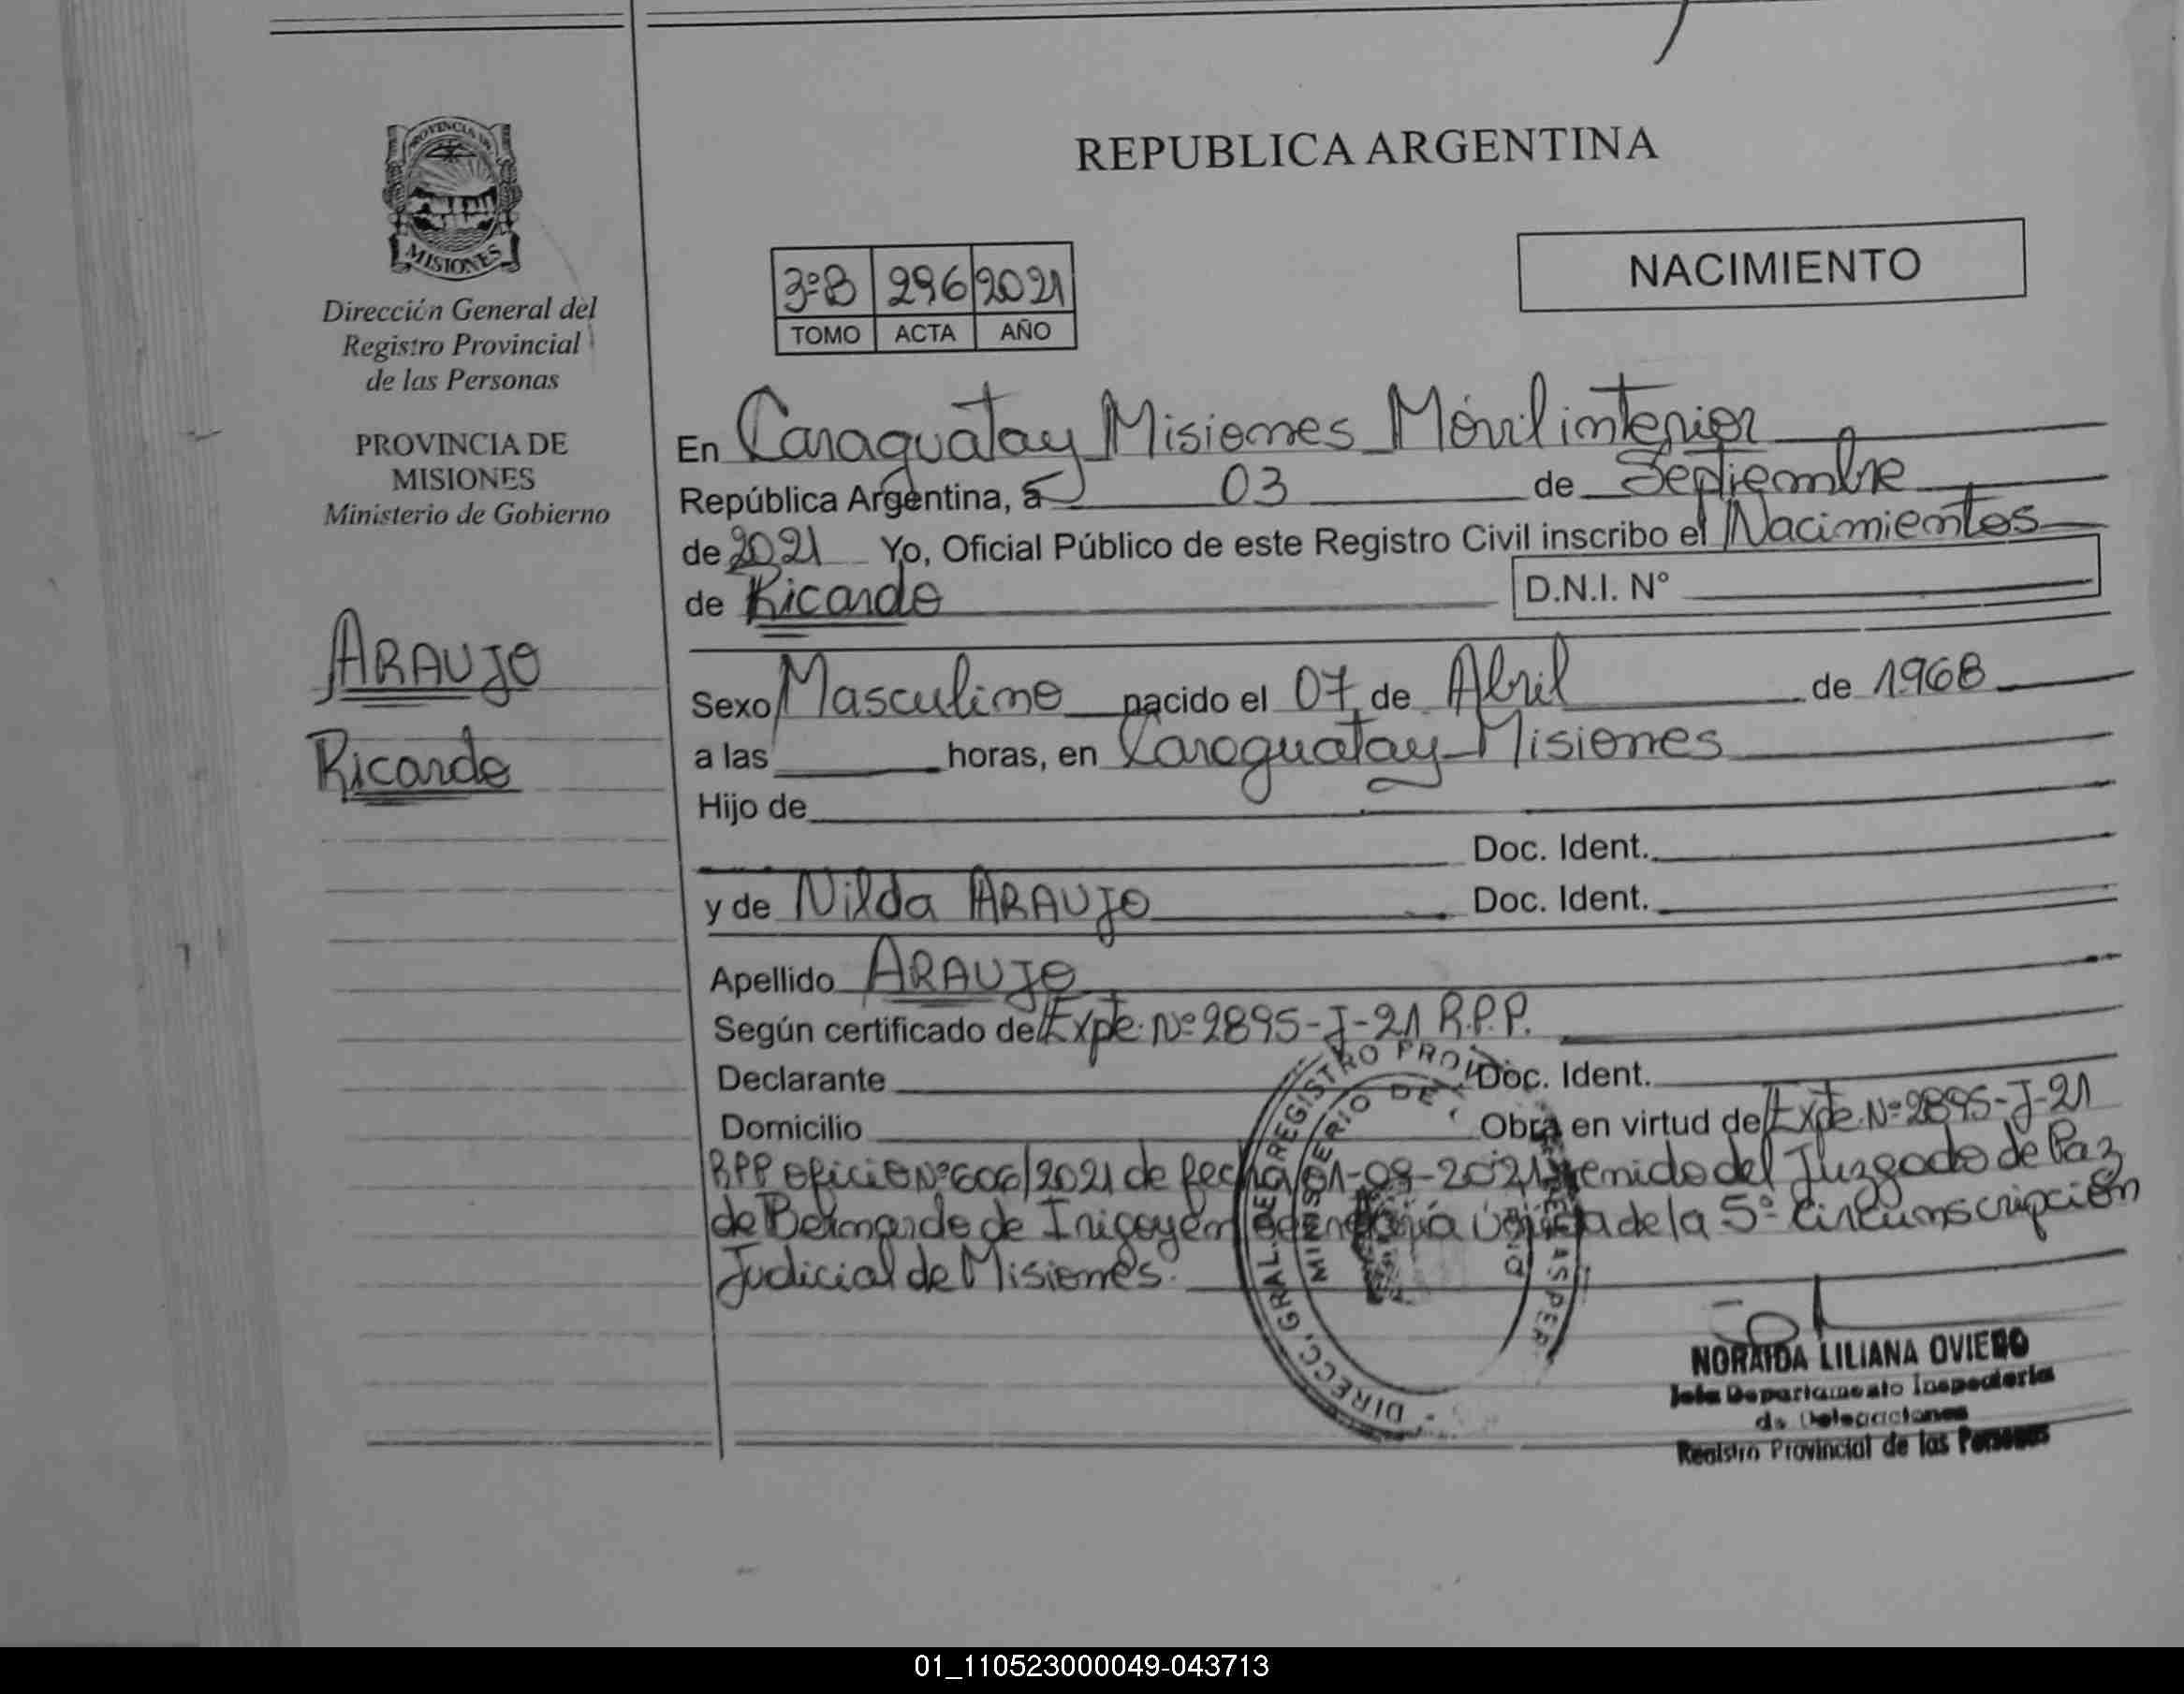 PROVINCIA DE
MISIONES
Dirección General del
Registro Provincial
de las Personas
PROVINCIA DE
MISIONES
Ministerio de Gobierno
ARAUJO
Ricardo
REPUBLICA ARGENTINA
NACIMIENTO
3ºB 296 2021
TOMO ACTA AÑO
En Caraguatay Misiones Móvil interior
República Argentina, a 03 de Septiembre
de 2021 Yo, Oficial Público de este Registro Civil inscribo el Nacimientos
de Ricardo D.N.I. N°
Sexo Masculino nacido el 07 de Abril de 1968
a las horas, en Caraguatay Misiones
Hijo de
Doc. Ident.
y de Nilda ARAUJO Doc. Ident.
Apellido ARAUJO
Según certificado de Expte. Nº 2895-J-21 R.P.P.
Declarante Doc. Ident.
Domicilio Obra en virtud de Expte. Nº 2895-J-21
RPP oficio Nº 606/2021 de fecha 01-09-2021 del Juzgado de Paz
de Bernardo de Irigoyen de la 5º Circunscripción
Judicial de Misiones.
DIRECC. GRAL. DEL REGISTRO
MINISTERIO DE
NORAIDA LILIANA OVIEDO
Jefa Departamento Inspectoría
de Delegaciones
Registro Provincial de las Personas
01_110523000049-043713